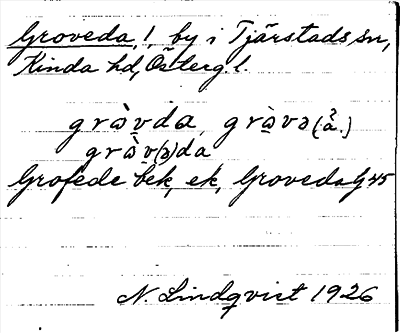 Groveda, !, by i Tjärstads sn,
Kinda hd, Österg. l.
grɷ̀v̱da, grɷ̀və (å̊.)
grɷ̀v̱(ə)da
Grofede bek, ek, Groveda G 45
N. Lindqvist 1926